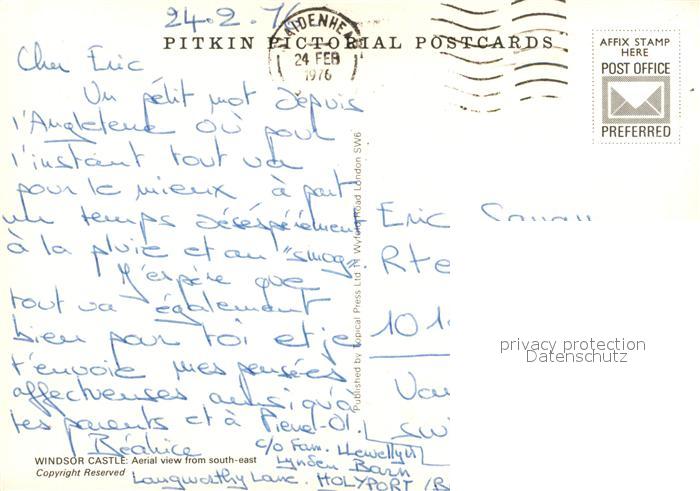 24.2.76
MAIDENHEAD
24 FEB
1976
PITKIN PICTORIAL POSTCARDS
AFFIX STAMP
HERE
POST OFFICE
PREFERRED
Cher Eric
Un petit mot depuis
l'Angleterre où pour
l'instant tout va
pour le mieux à part
un temps désespérément
à la pluie et au "smog".
J'espère que
tout va également
bien pour toi et je
t'envoie mes pensées
affectueuses ainsi qu'à
tes parents et à Pierre-Ol.
Béatrice
c/o Fam. Llewellyn
Lynden Barn
Langworthy Lane. HOLYPORT /B
WINDSOR CASTLE: Aerial view from south-east
Copyright Reserved
Published by Topical Press Ltd 11 Wyfold Road London SW6
Eric
Rte
101
Vau
SW
privacy protection
Datenschutz